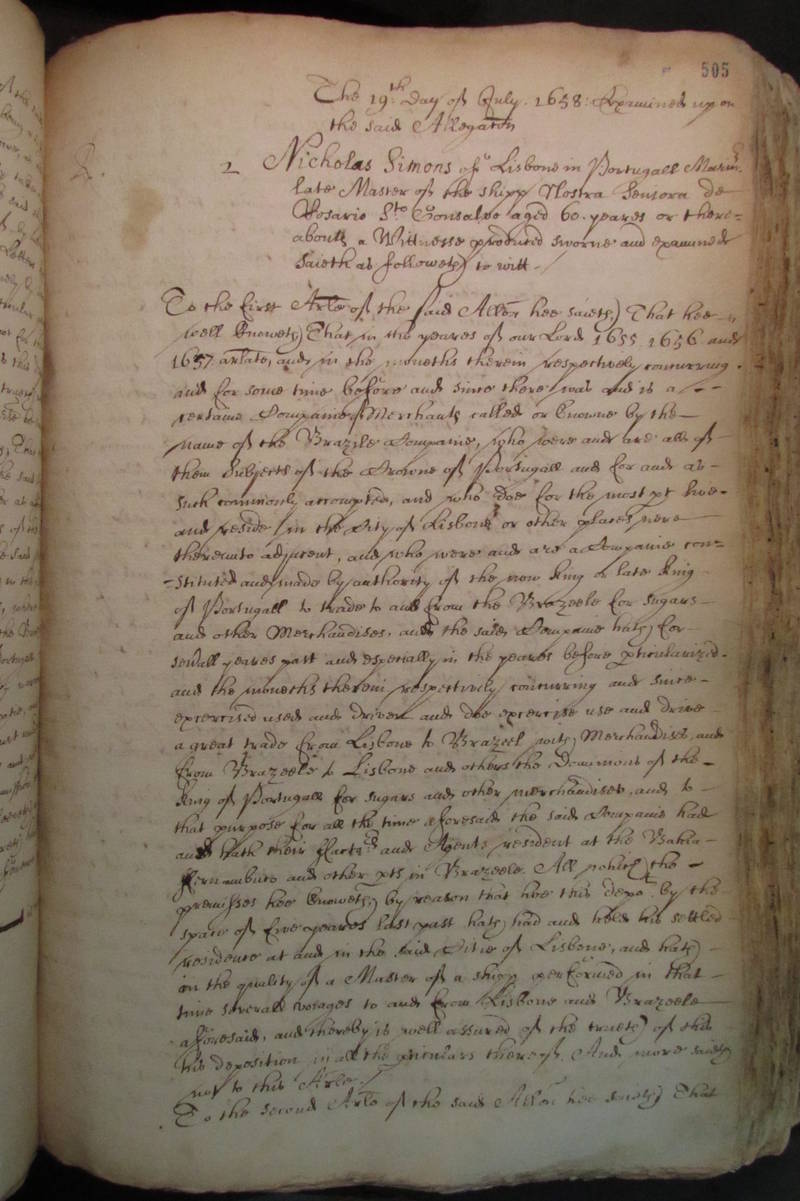 505
The 19th. Day of July. 1658: Examined upon
the said Allegation
2 Nicholas Simons of Lisbone in Portugall Marinr.
late Master of the shipp Nostra Seniora de
Rosario Sto Gonsalve aged 60. yeares or there=
abouts a Wittnesse produced sworne and examined
saieth as followeth to witt./
To the first Arle of the said Allon hee saieth That hee
well knoweth That in the yeares of our Lord 1655 1656 and
1657 arlate, and in the moneths therein respectively concurring.
and for some time before and since there was and is a
certaine Companie of Merchants called or knowne by the
name of the Brazile Companie, who were and are all of
them Subjects of the Crowne of Portugall and for and as
such commonly accompted, and who doe for the most pt live
and reside in the City of Lisbone or other places nere
thereunto adjacent, and who were and are a Companie con=
=stituted and made by authority of the now king or late king
of Portugall to trade to and from the Brazeele for sugars
and other Merchandises, and the said Companie hath for
severall yeares past and especially in the yeares before pticularized.
and the moneths therein respectively concurring and since
excercised used and driven and doe excercise use and drive
a great trade from Lisbone to Brazeel with Merchandises, and
from Brazeele to Lisbone and others the Dominions of the
king of Portugall for sugars and other merchandises, and to
that purpose for all the time aforesaid the said Companie had
and hath their Factors and Agents resident at the Bahia
Fernambuco and other pts in Brazeele. All which the
premisses hee knoweth, by reason that hee this depot. by the
space of five yeares last past hath had and held his settled
residence at and in the said Citie of Lisbone, and hath
in the quality of a Master of a shipp performed in that
time severall voiages to and from Lisbone and Brazeele
aforesaid, and thereby is well assured of the trueth of this
his deposition in all the pticulars thereof. And more saieth
not to this Arle./
To the second Arle of the said Allon hee saieth That